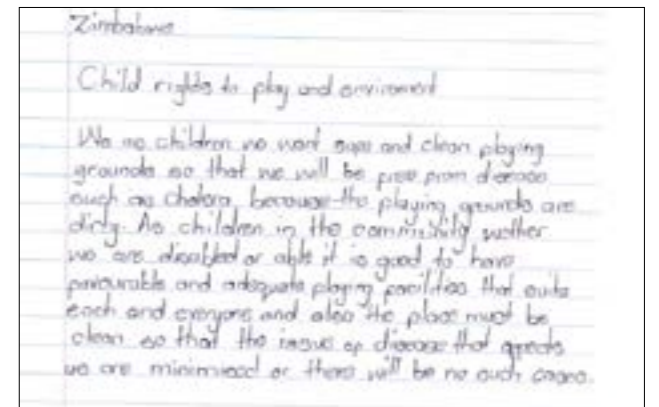 Zimbabwe
Child rights to play and enviroment
We as children we want safe and clean playing
grounds so that we will be free from diseases
such as cholera, because the playing grounds are
dirty. As children in the community wether
we are disabled or able it is good to have
favourable and adequate playing facilities that suits
each and everyone and also the place must be
clean so that the issue of disease that affects
us are minimised or there will be no such cases.